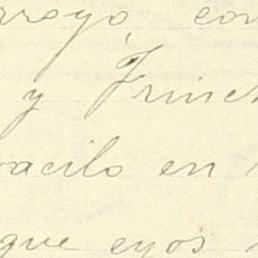 rroyo, con
y Trinch
vacilo en
que eyos